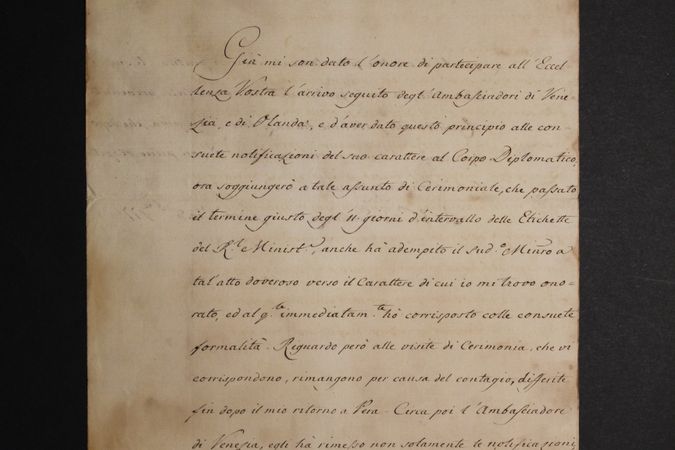 Già mi son dato l'onore di partecipare all'Eccel-
lenza Vostra l'arrivo seguito degl'Ambasciadori di Vene-
zia, e di Olanda, e d'aver dato questi principio alle con-
suete notificazioni del suo carattere al Corpo Diplomatico,
ora soggiungerò a tale assunto di Cerimoniale, che passato
il termine giusto degl' 11 giorni d'intervallo delle Etichette
del R.l Minist.o, anche hà adempito il sud.o Minro a
tal'atto doveroso verso il Carattere di cui io mi trovo ono-
rato, ed al q.le immediatam.te hò corrisposto colle consuete
formalità. Riguardo però alle visite di Cerimonia, che vi
corrispondono, rimangono per causa del contagio, differite
fin dopo il mio ritorno a Pera. Circa poi l'Ambasciadore
di Venezia, egli hà rimesso non solamente le notificazioni